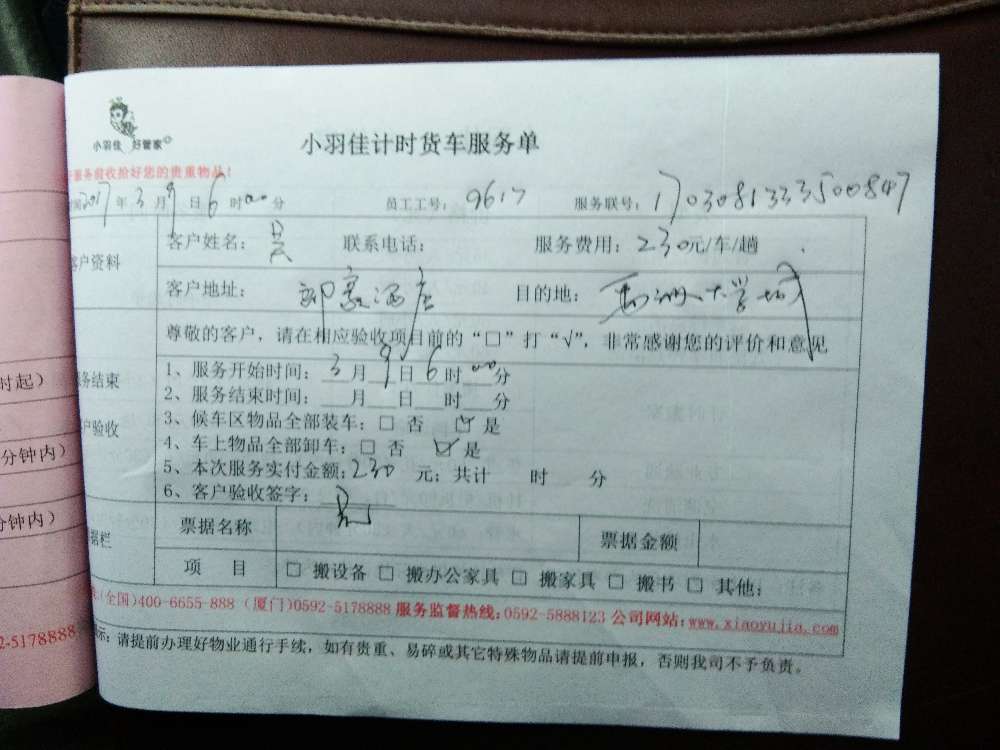 小羽佳 好管家
小羽佳计时货车服务单
服务前收拾好您的贵重物品！
2017年3月9日6时00分 员工工号：9617 服务联号：1703081333500847
客户姓名： 联系电话： 服务费用：230元/车/趟
客户资料
客户地址： 酒店 目的地： 大学城
尊敬的客户，请在相应验收项目前的“□”打“√”，非常感谢您的评价和意见
1、服务开始时间：3月9日6时00分
务结束
2、服务结束时间：___月___日___时___分
3、候车区物品全部装车：□ 否 ☑ 是
户验收
4、车上物品全部卸车：□ 否 ☑ 是
5、本次服务实付金额：230 元；共计 时 分
6、客户验收签字：
票据名称 票据金额
据栏
项 目 □ 搬设备 □ 搬办公家具 □ 搬家具 □ 搬书 □ 其他：
(全国)400-6655-888 (厦门)0592-5178888 服务监督热线：0592-5888123 公司网站：www.xiaoyujia.com
示：请提前办理好物业通行手续，如有贵重、易碎或其它特殊物品请提前申报，否则我司不予负责。
时起）
分钟内）
分钟内）
2-5178888